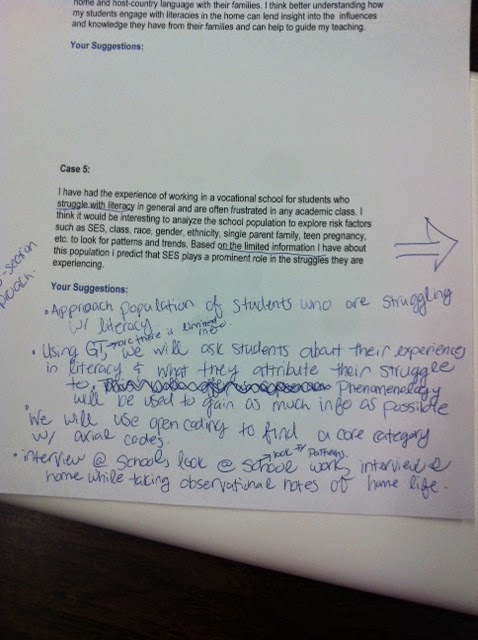 home and host-country language with their families. I think better understanding how
my students engage with literacies in the home can lend insight into the influences
and knowledge they have from their families and can help to guide my teaching.
Your Suggestions:
Case 5:
I have had the experience of working in a vocational school for students who
struggle with literacy in general and are often frustrated in any academic class. I
think it would be interesting to analyze the school population to explore risk factors
such as SES, class, race, gender, ethnicity, single parent family, teen pregnancy,
etc. to look for patterns and trends. Based on the limited information I have about
this population I predict that SES plays a prominent role in the struggles they are
experiencing.
Your Suggestions:
• Approach population of students who are struggling
w/ literacy
there is limited
info.
• Using GT, we will ask students about their experience
in literacy & what they attribute their struggle
to. Phenomenology
will be used to gain as much info as possible
• We will use open coding to find a core category
w/ axial codes.
look for patterns
• interview @ school, look @ school work, interview @
home while taking observational notes of home life.